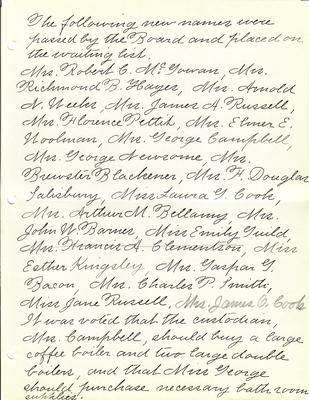 The following new names were
passed by the Board and placed on
the waiting list.
Mrs. Robert C. McGowan, Mrs.
Richmond B. Hayes, Mrs. Arnold
N. Weeks, Mrs. James A. Russell,
Mrs. Florence Pettit, Mrs. Elmer E.
Woolman, Mrs. George Campbell,
Mrs. George Newsome, Mrs.
Brewster Blackener, Mrs. F. Douglas
Salisbury, Miss Laura G. Cook,
Mrs. Arthur M. Bellamy, Mrs.
John W. Barnes, Miss Emily Guild,
Mrs. Francis A. Clementson, Miss
Esther Kingsley, Mrs. Gaspar G.
Bacon, Mrs. Charles P. Smith,
Miss Jane Russell, Mrs. James O. Cook
It was voted that the custodian,
Mrs. Campbell, should buy a large
coffee boiler and two large double
boilers, and that Miss George
should purchase necessary bath room
supplies.